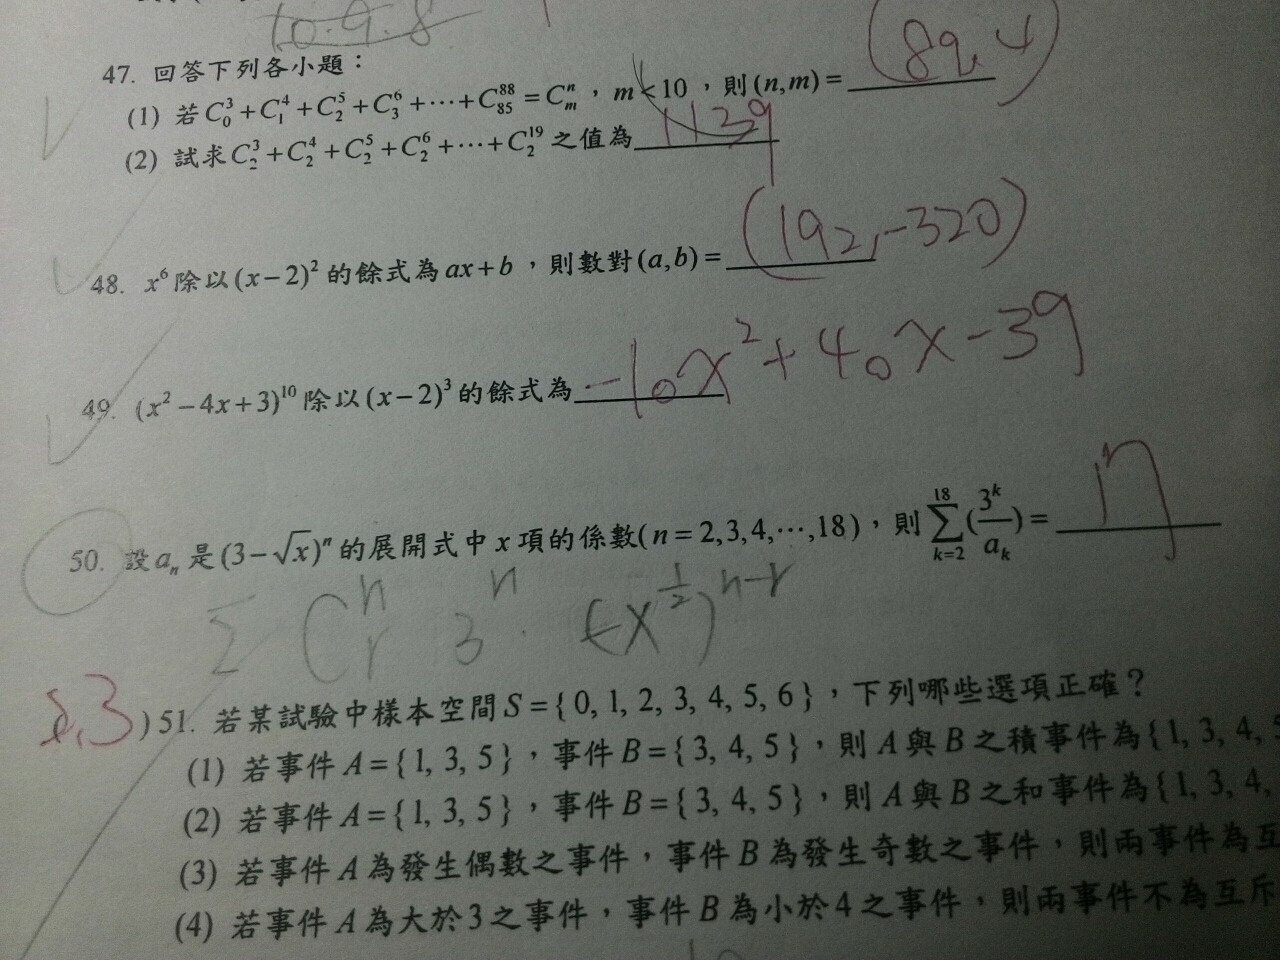 10.9.8
47. 回答下列各小題：
(1) 若 C₀³+C₁⁴+C₂⁵+C₃⁶+⋯+C₈₅⁸⁸=Cₘⁿ，m<10，則(n,m)= (89,4)
(2) 試求 C₂³+C₂⁴+C₂⁵+C₂⁶+⋯+C₂¹⁹之值為 1139
48. x⁶除以(x−2)²的餘式為ax+b，則數對(a,b)= (192,-320)
49. (x²−4x+3)¹⁰除以(x−2)³的餘式為 -10x²+40x-39
50. 設aₙ是(3−√x)ⁿ的展開式中x項的係數(n=2,3,4,⋯,18)，則 ∑_{k=2}^{18}(3ᵏ/aₖ)= 17
Σ Cᵣⁿ 3ⁿ · (-x^{1/2})^{n-r}
2,3 )51. 若某試驗中樣本空間S={0, 1, 2, 3, 4, 5, 6}，下列哪些選項正確？
(1) 若事件A={1, 3, 5}，事件B={3, 4, 5}，則A與B之積事件為{1, 3, 4, 5
(2) 若事件A={1, 3, 5}，事件B={3, 4, 5}，則A與B之和事件為{1, 3, 4,
(3) 若事件A為發生偶數之事件，事件B為發生奇數之事件，則兩事件為互
(4) 若事件A為大於3之事件，事件B為小於4之事件，則兩事件不為互斥